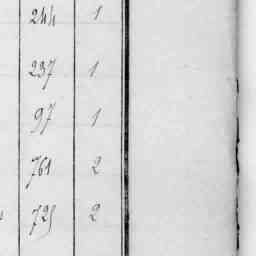 244 1
237 1
97 1
761 2
725 2